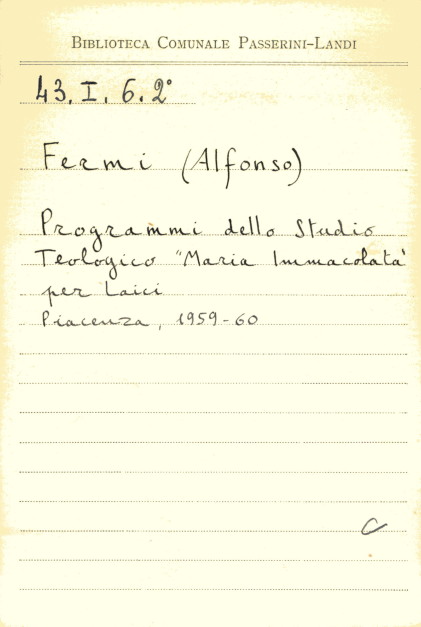 Biblioteca Comunale Passerini-Landi
43. I. 6. 2°
Fermi (Alfonso)
Programmi dello Studio
Teologico "Maria Immacolata"
per Laici
Piacenza, 1959-60
C